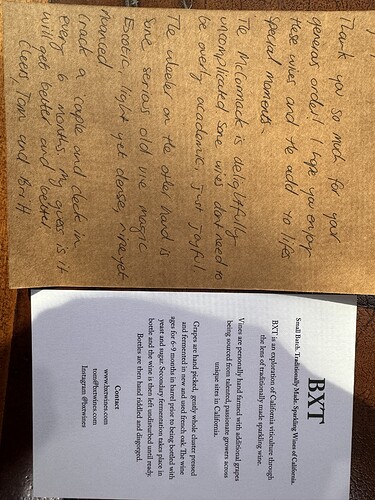 Thank you so much for your
generous order! I hope you enjoy
these wines and the add to lifes
special moments.
The McCormack is delightfully
uncomplicated. Some wines dont need to
be overly academic, just joyful.
The Wheeler on the other hand is
some serious old vine magic
Exotic, light yet dense, ripe yet
nuanced
Crack a couple and check in
every 6 months. My guess is it
will get better and better!
Cheers, Tom and Britt
BXT
Small Batch, Traditionally Made, Sparkling Wines of California.
BXT is an exploration of California viticulture through
the lens of traditionally made sparkling wine.
Vines are personally hand farmed with additional grapes
being sourced from talented, passionate growers across
unique sites in California.
Grapes are hand picked, gently whole cluster pressed
and fermented in new and used french oak. The wine
ages for 6-9 months in barrel prior to being bottled with
yeast and sugar. Secondary fermentation takes place in
bottle and the wine is then left undisturbed until ready.
Bottles are then hand riddled and disgorged.
Contact
www.bxtwines.com
tom@bxtwines.com
Instagram @bxtwines